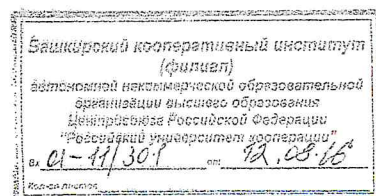 Башкирский кооперативный институт
(филиал)
автономной некоммерческой образовательной
организации высшего образования
Центросоюза Российской Федерации
"Российский университет кооперации"
Вх 01-11/301 от: 12.08.16
Кол-во листов